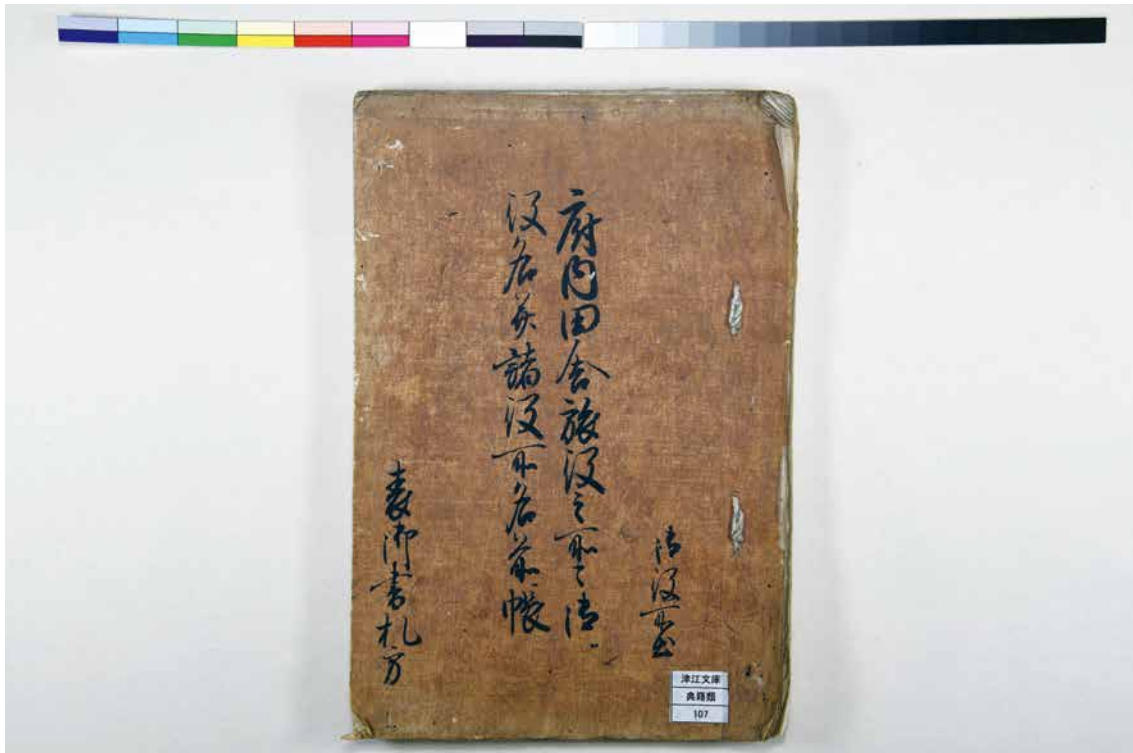 御役所
府内田舎旅役之所々御
役名并諸役所名前帳
表御書札方
津江文庫
典籍類
107